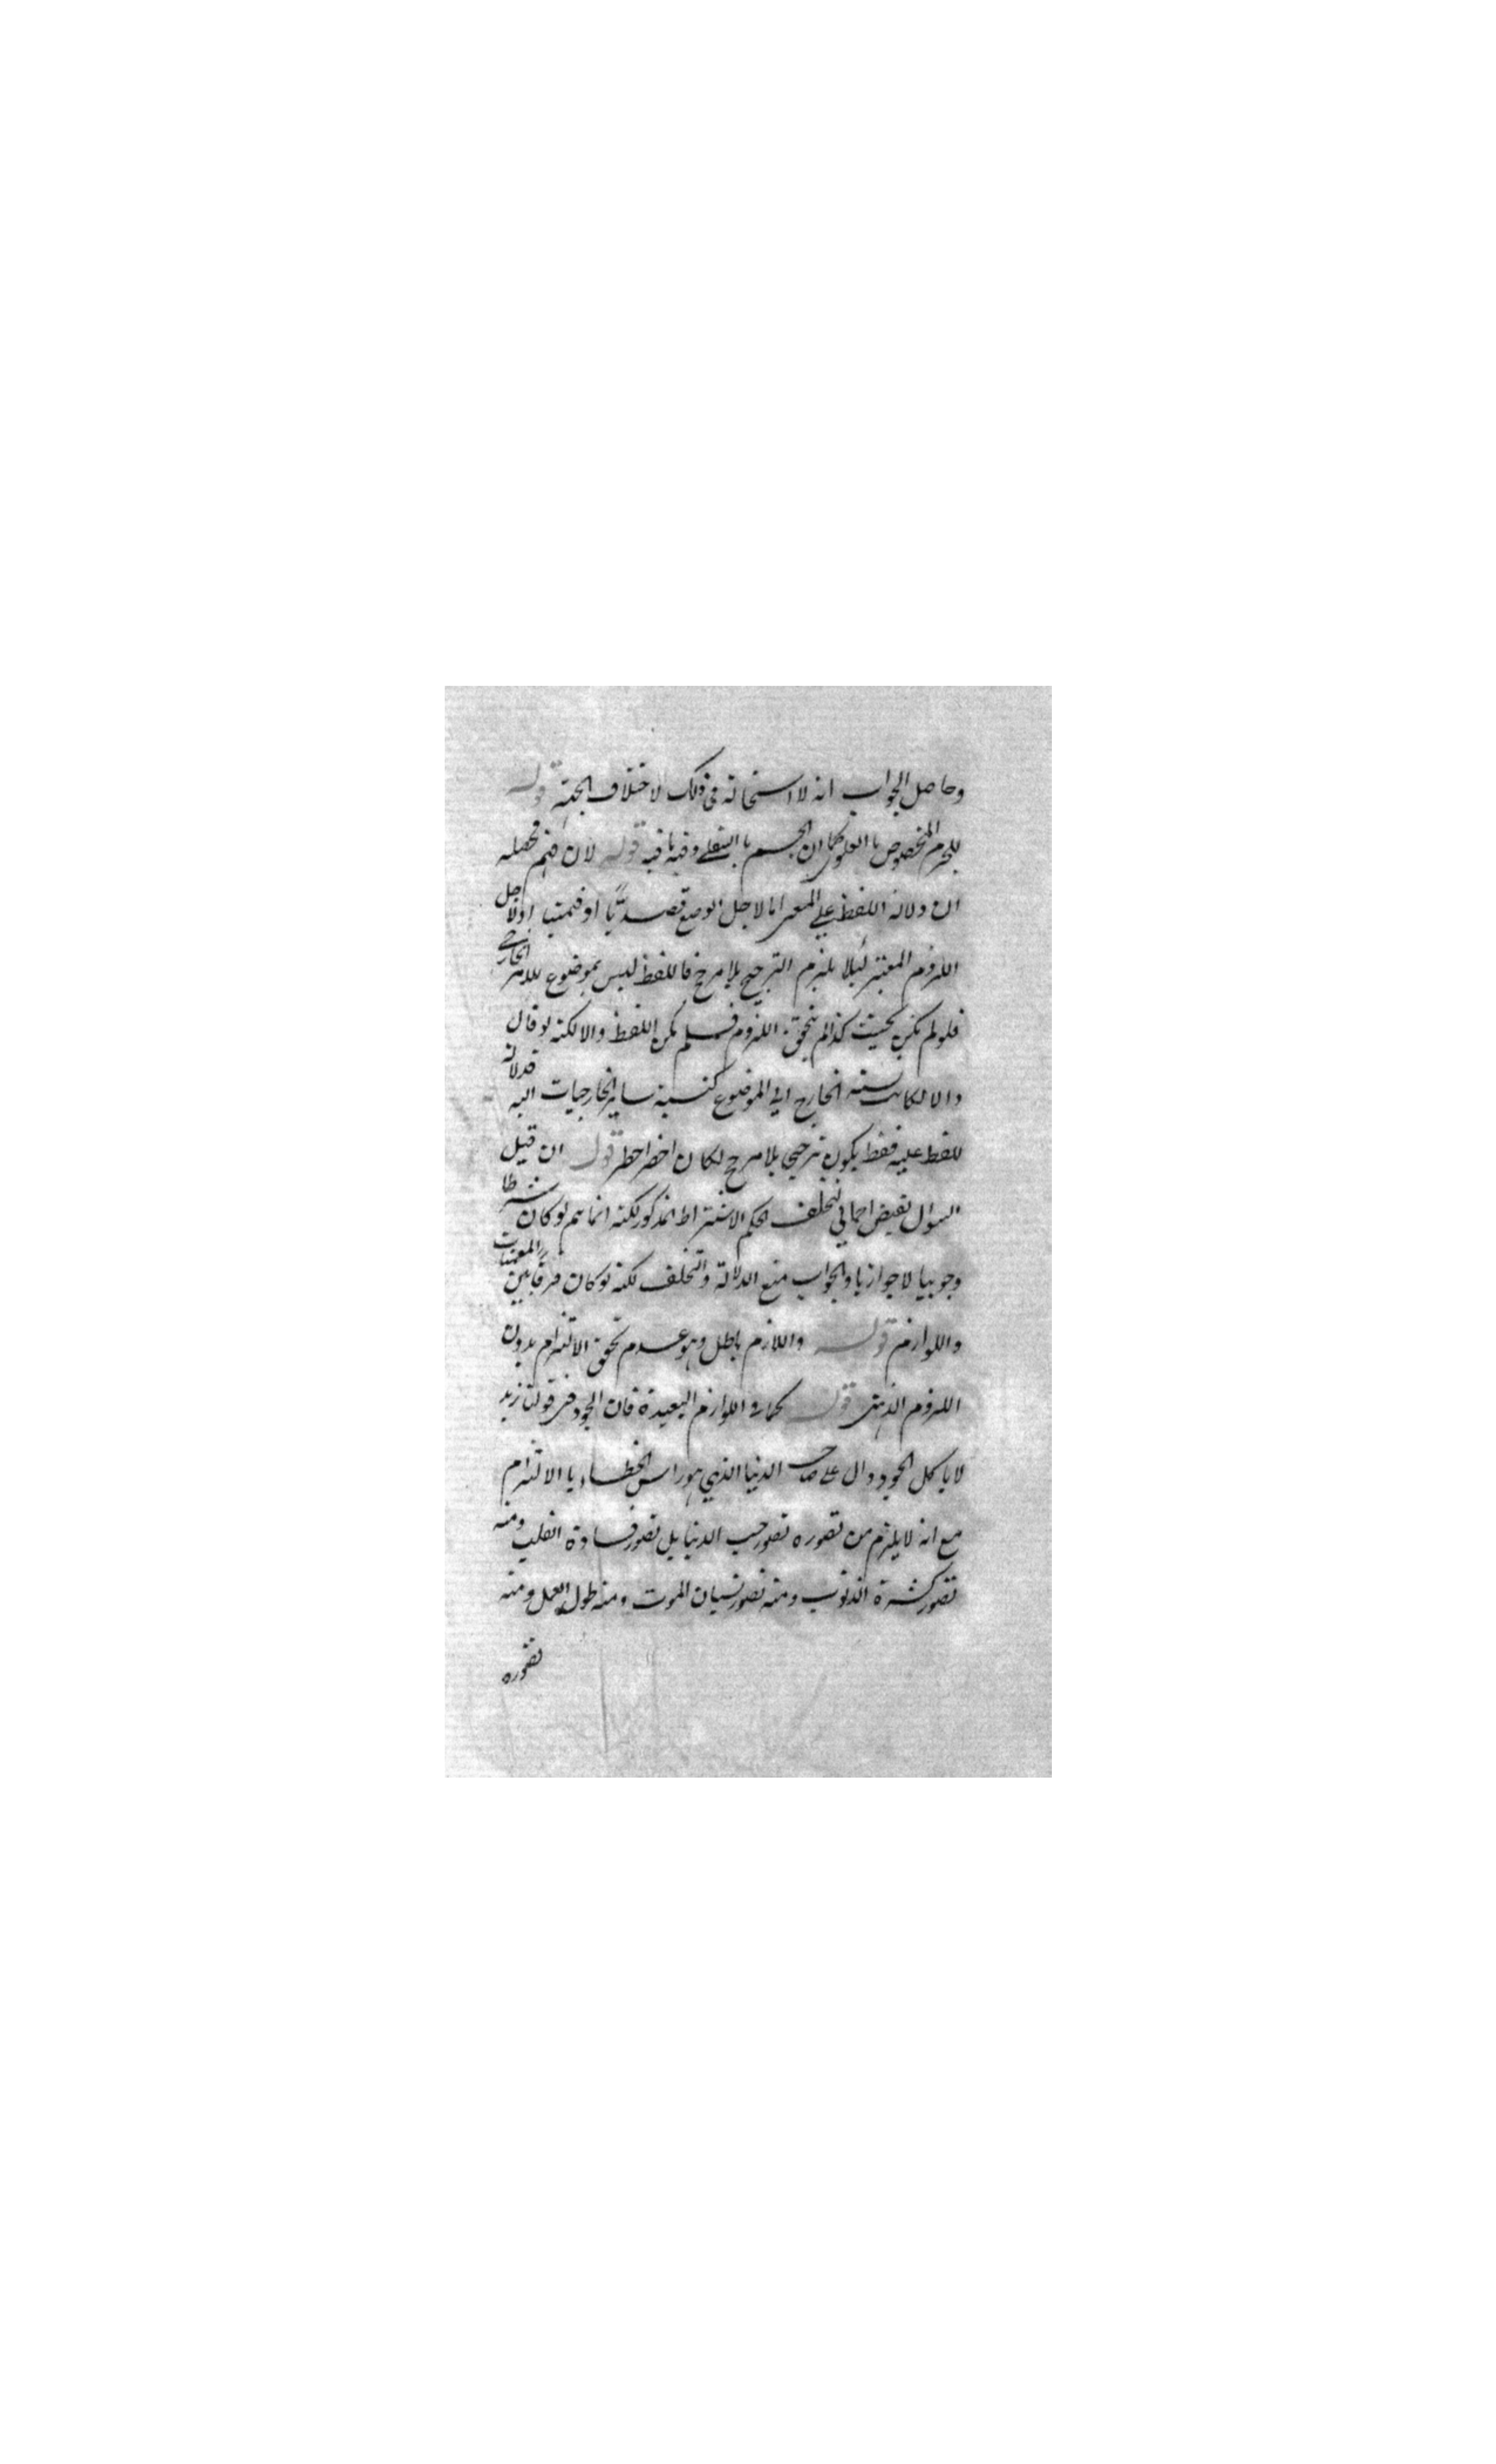 وحاصل الجواب انه لا استحالة في ذلك لاختلاف الجهة قوله
للجرم المخصوص با العلو كما ان الجسم با السفلي وفيه ما فيه قوله لان فهم محصله
ان دلالة اللفظ علي المعنى اما لاجل الوضع قصديّا او ضمنيا او لاجل
اللزوم المعتبر لئلا يلزم الترجيح بلا مرجح فاللفظ ليس بموضوع للامر الخارجي
فلو لم يكن بحيث كذا لم يتحقق اللزوم فلم يكن اللفظ والا لكنه لو قال
والا لكانت نسبة الخارج الي الموضوع كنسبة ساير الخارجيات اليه فدلالة
للفظ عليه فقط يكون ترجيحا بلا مرجح لكان اخصر قوله ان قيل
السوال نقيض اجمالي لتخلف الحكم الاشتراط المذكور لكنه انما يتم لو كان شرطا
وجوبيا لا جوازيا والجواب منع الدلالة والتخلف لكنه لو كان فرقا بين المعنيات
واللوازم قوله واللازم باطل وهو عدم تحقق الالتزام بدون
اللزوم الذهني قوله كما في اللوازم البعيدة فان الجود في قولك زيد
لا يأكل الجود دال على صاحب الدنيا الذي هو راس الخطاء با الالتزام
مع انه لا يلزم من تصوره تصور حب الدنيا بل تصور قساوة القلب ومنه
تصور كثرة الذنوب ومنه تصور نسيان الموت ومنه طول العمل ومنه
تصوره